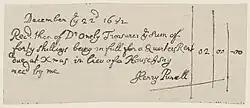 December ye 22d 16
Recd then of Dr Oney Treasurer ye Sum of
forty Shillings being in full for a Quarters Rent 02 00 00
due at Xmas in lieu of a House
recd by me
Henry Purcell